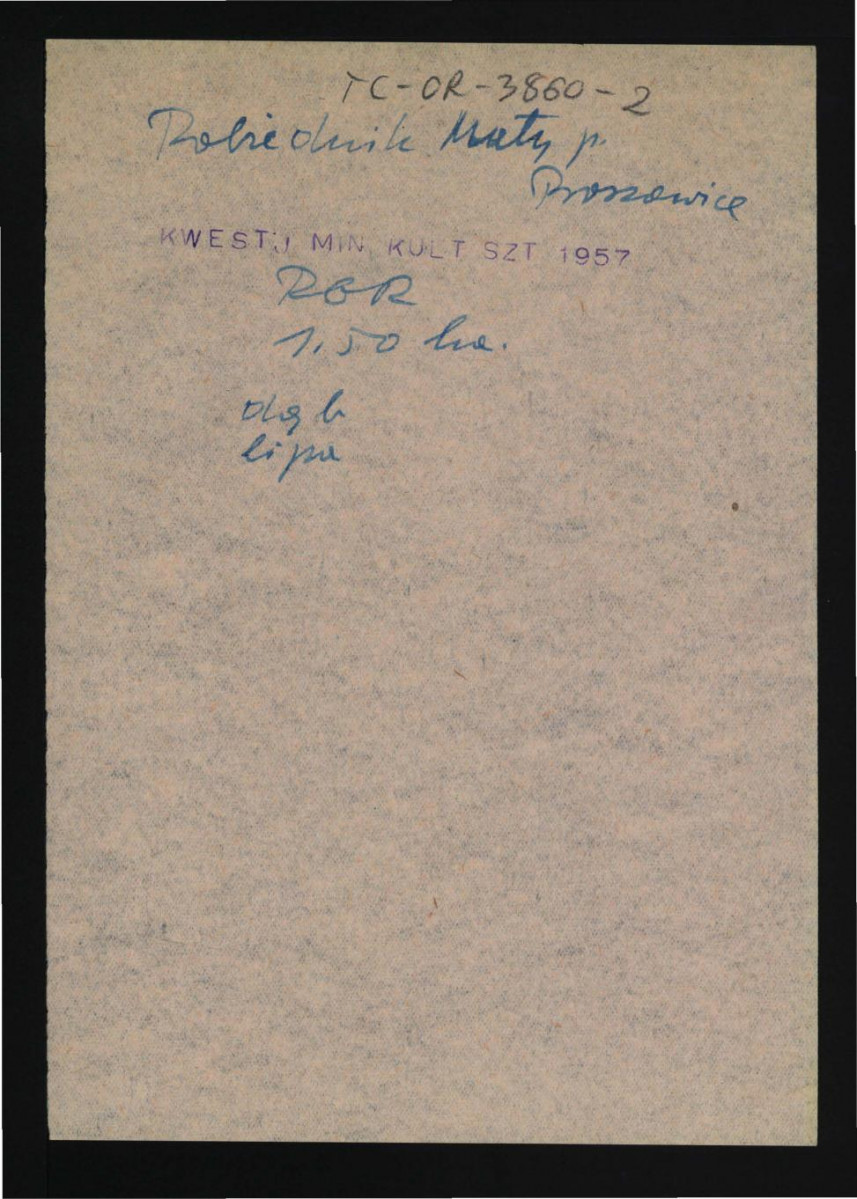 TC-OR-3860-2
Pobiednik Mały p.
Proszowice
KWESTJ MIN KULT SZT 1957
PGR
1.50 ha.
dąb
lipa